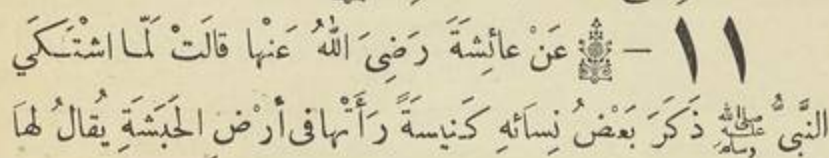 ١١ – عَنْ عائِشَةَ رَضِىَ اللّٰهُ عَنْها قالَتْ لَمّا اشْتَكَي
النَّبِىُّ ﷺ ذَكَرَ بَعْضُ نِسائِهِ كَنيسَةً رَأَتْها فى أرْضِ الحَبَشَةِ يُقالُ لهَا